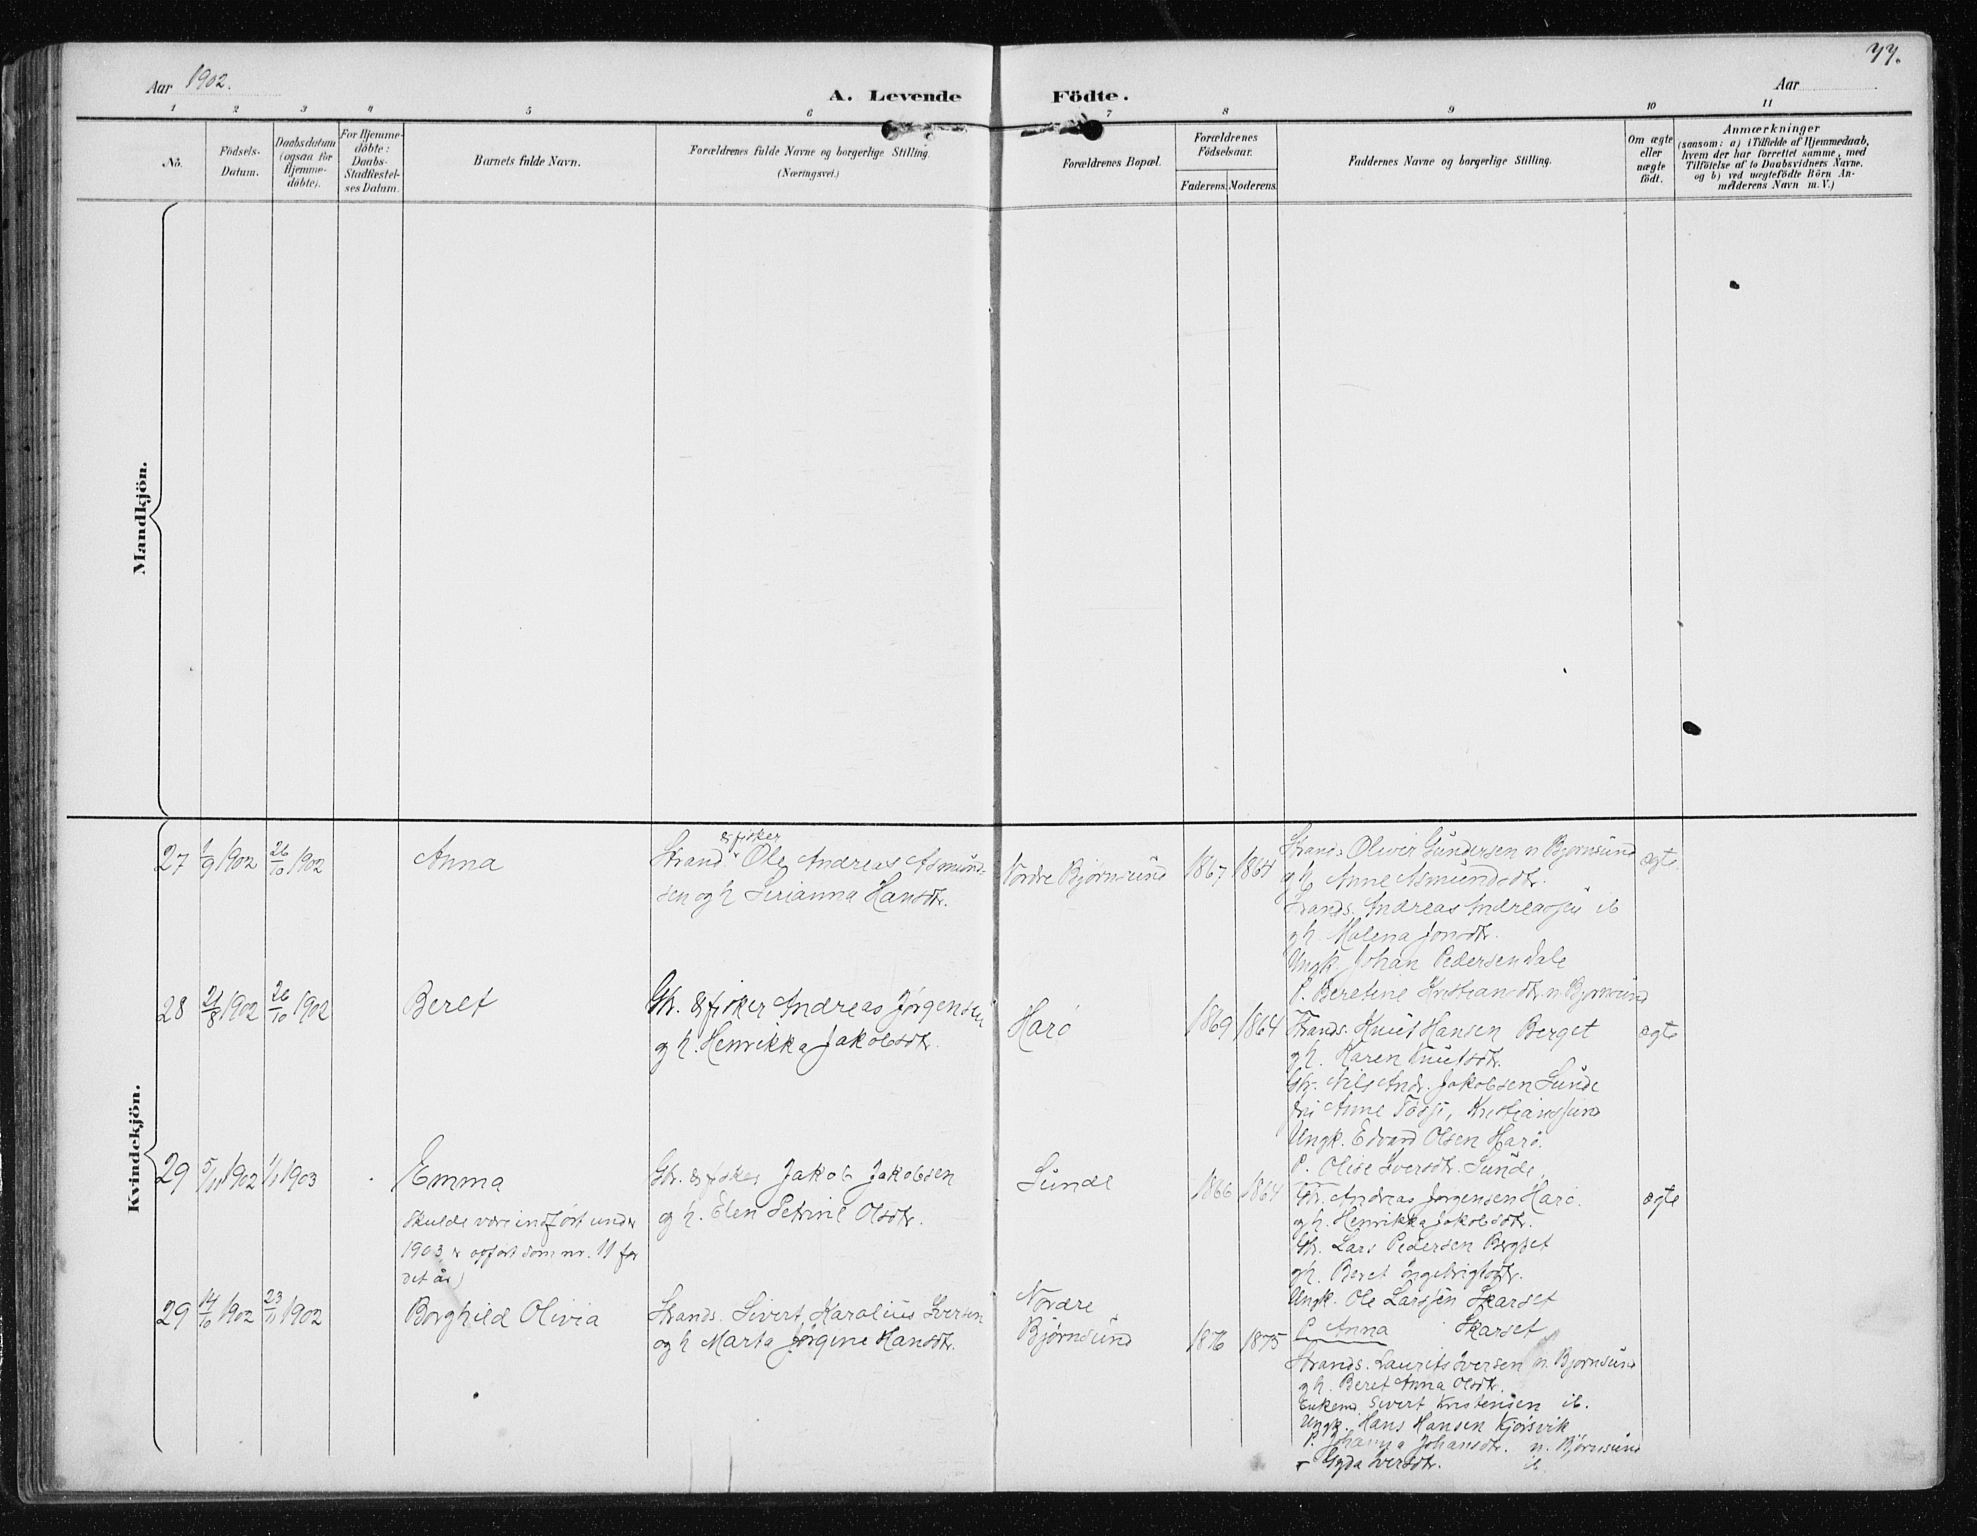 77.
Aar 1902.
A. Levende Födte.
Aar
1 2 3 4 5 6 7 8 9 10 11
Nö.
Födsels-
Datum.
Daabsdatum
(ogsaa for
Hjemme-
döbte).
For Hjemme-
döbte:
Daabs-
Stadfæstel-
ses Datum.
Barnets fulde Navn.
Forældrenes fulde Navne og borgerlige Stilling.
(Næringsvei.)
Forældrenes Bopæl.
Forældrenes
Födselsaar.
Faderens. Moderens.
Faddernes Navne og borgerlige Stilling.
Om ægte
eller
uægte
födt.
Anmærkninger
(saasom: a) i Tilfælde af Hjemmedaab,
hvem der har forrettet samme, med
Tilföielse af to Daabsvidners Navne,
og b) ved uægtefödte Börn An-
melderens Navn m. V.)
Mandkjön.
Kvindekjön.
27 1/9 1902 26/10 1902 Anna
Strand. & fisker Ole Andreas Asmund-
sen og h Serianna Hansdtr.
Nordre Bjørnsund 1867 1864
Strands. Oliver Gundersen n. Bjørnsund
g h. Anne Asmundsdtr.
Strands. Andreas Andreassen ib
g h. Malena Jonsdtr.
Ungk. Johan Pedersen Dale
P. Beretine Kristiansdtr. n. Bjørnsund
ægte
28 21/8 1902 26/10 1902 Beret
Gbr. & fisker Andreas Jørgensen
og h. Henrikka Jakobsdtr.
Harö 1869 1864
Strands. Knut Hansen Berget
g h. Karen Knutsdtr.
Gbr. Nils Andr. Jakobsen Sunde
Anne Kristianssund
Ungk. Edvard Olsen Harö.
P. Olise Iversdtr. Sunde,
ægte
29 5/11 1902 1/1 1903 Emma
Skulde være indført under
1903, er opført som nr. 11 for
det år)
Gbr. & fisker Jakob Jakobsen
og h. Elen Setrine Olsdtr.
Sunde 1866 1864
Gbr. Andreas Jørgensen Harö.
g h. Henrikka Jakobsdtr.
Gbr. Lars Pedersen Bergset
g h. Beret Ingebrigtsdtr.
Ungk. Ole Larssen Skarset
P. Anna Skarset
ægte
29 14/10 1902 23/11 1902 Borghild Olivia
Strands. Sivert Karolius Iversen
og h Marta Jørgine Hansdtr.
Nordre
Bjørnsund 1876 1875
Strands. Laurits Iversen n. Bjørnsund
g h. Beret Anna Olsdtr.
Enkem. Sivert Kristensen ib.
Ungk. Hans Hansen Kjörsvik
P. Johanna Johansdtr. n. Bjørnsund
Gyda Iversdtr. ib